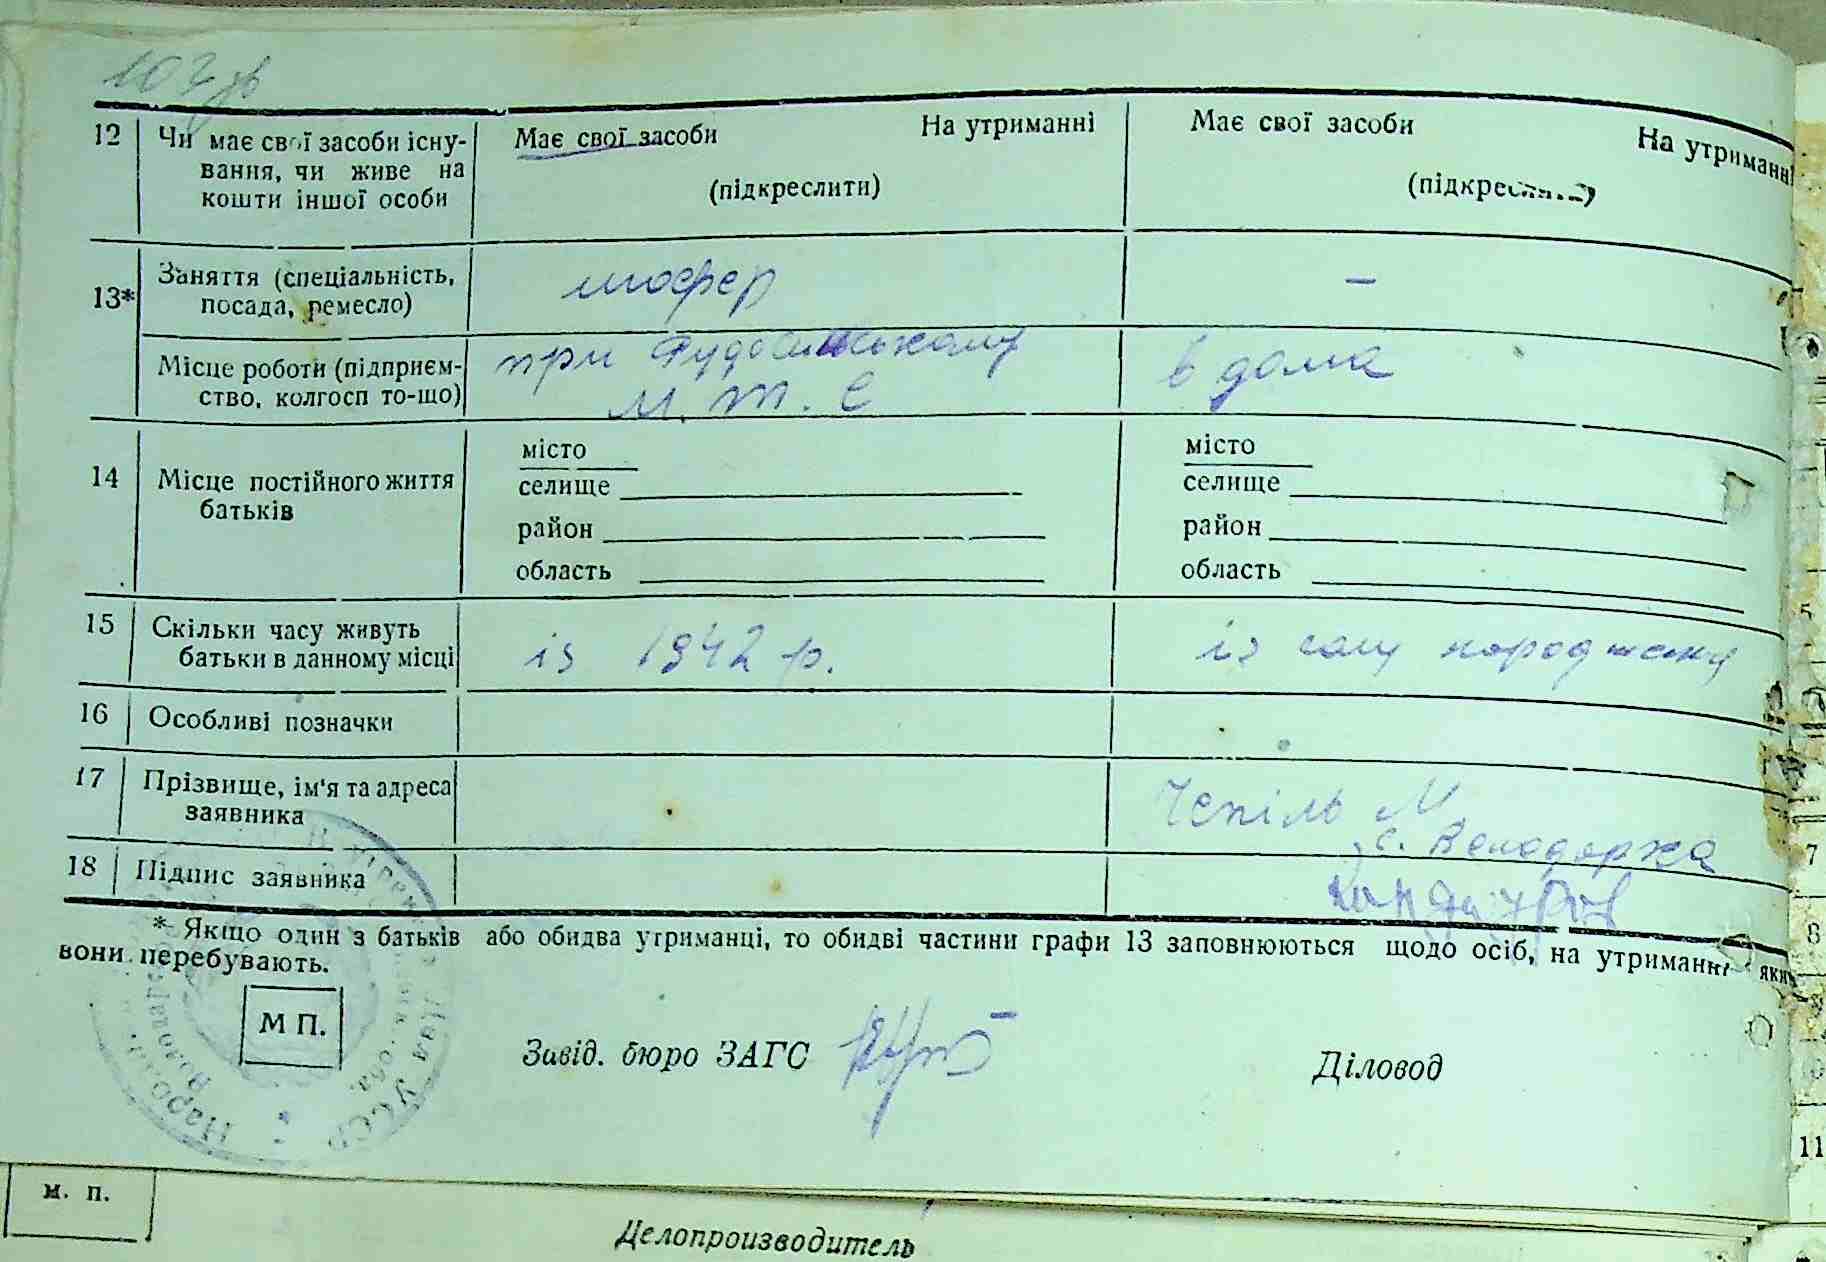 12 Чи має свої засоби існу- Має свої засоби На утриманні Має свої засоби На утриманні
вання, чи живе на (підкреслити) (підкреслити)
кошти іншої особи
13* Заняття (спеціальність, шофер –
посада, ремесло)
Місце роботи (підприєм- при в дома
ство, колгосп то-що) М. Т. С
14 Місце постійного життя місто місто
батьків селище селище
район район
область область
15 Скільки часу живуть із 1942 р. із
батьки в данному місці
16 Особливі позначки
17 Прізвище, ім'я та адреса Чепіль М
заявника с. Володоржа
18 Підпис заявника
* Якщо один з батьків або обидва утриманці, то обидві частини графи 13 заповнюються щодо осіб, на утриманні яких
вони перебувають.
М П.
Завід. бюро ЗАГС Діловод
м. п.
Делопроизводитель
5
7
8
11